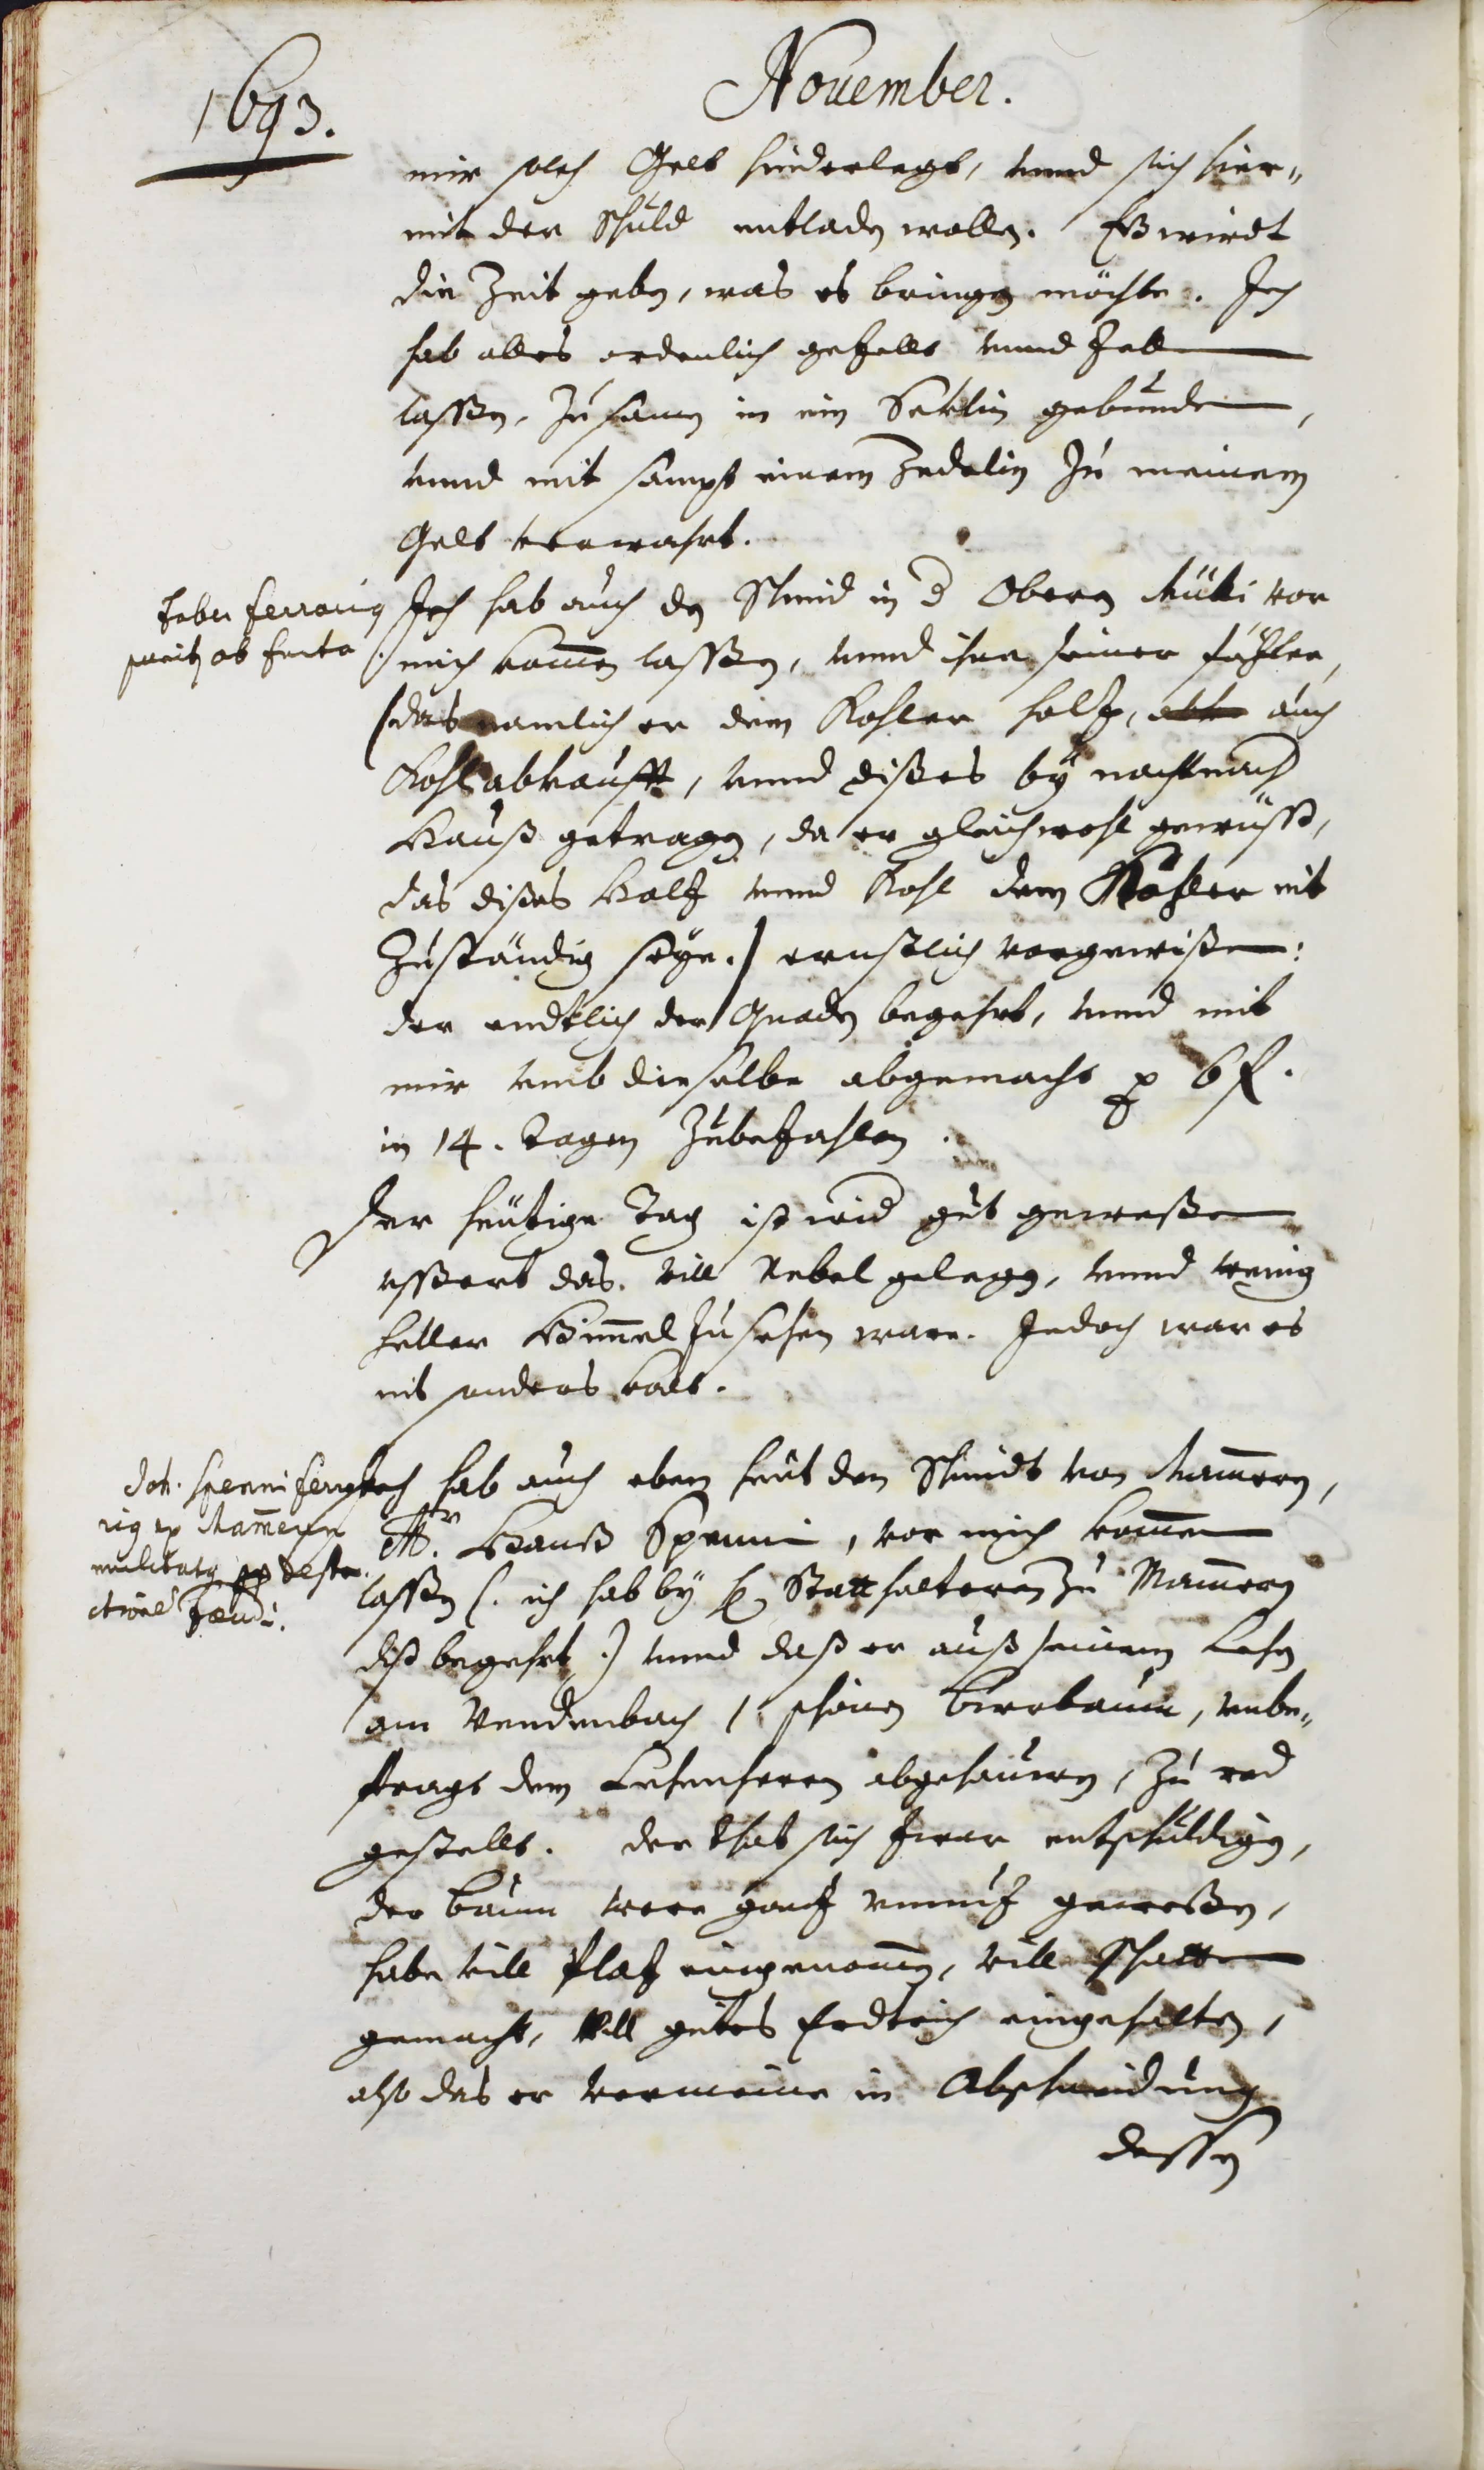 1693.
November.
mir solch Gelt hinderlegt, vnnd sich hier„
mit der Schuld entladen wollen. Eß wirdt
die Zeit geben, was es bringen möchte. Ich
hab alles ordenlich gezellt vnnd zellen
lassen, zusamen in ein Seklin gebunden,
vnnd mit sampt einem Zedelin zu meinem
Gelt verwahrt.
faber ferrarius
punitus ob furta.
Ich hab auch den Schmid in d Oberen Müli vor
mich kommen lassen, vnnd ihne seiner fähler,
(das namlich er dem Kohler holtz, auch
Kohl abkaufft, vnnd dißes by nacht nach
Hauß getragen, da er gleichwohl gewüsst,
das dißes Holtz vnnd Kohl dem Kohler nit
zuständig seye.) ernstlich vorgewißen:
der endtlich der Gnaden begehrt, vnnd mit
mir vmb dieselbe abgemacht p 6 fl.
in 14. tagen zubezahlen.
Der heütige Tag ist wid gut geweßen
vssert das vill Nebel gelegen, vnnd wenig
heller Himmel zusehen ware. Jedoch war es
nit sonders kalt.
Joh. Spenni
ex Mammern
mulctatus
Ich hab auch eben heüt den Schmidt von Mammern,
Mr. Hanß Spenni, vor mich kommen
lassen (. ich hab by H. Statthalteren zu Mammern
diß begehrt .) vnnd daß er auß seinem Lehen
am Vendenbach 1 schönen birrbaum, vnbe„
fragt dem Lehenherren abgehauwen, zu red
gestellt. der that sich zwar entschuldigen,
der baum were gantz vnnütz geweßen,
habe vill Platz eingenommen, vill Schatten
gemacht, vill gutes Erdtrich eingehalten,
also das er vermeine in Abschneidung
dessen